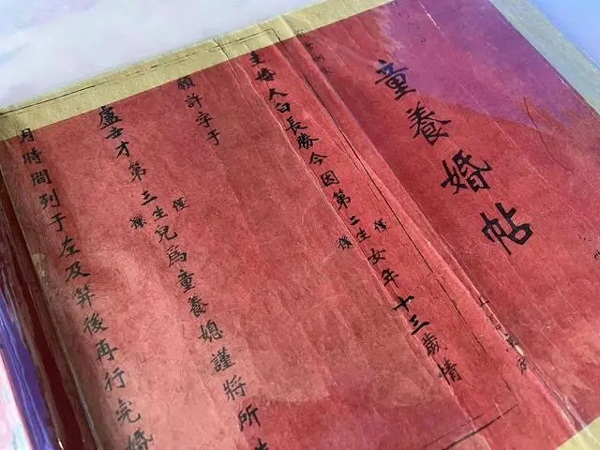 童養婚帖
主婚人白長勝今因第二生女年十三歲情
願許字于
盧才第三生兒為童養媳謹將所
月時間列于左及笄後再行完婚